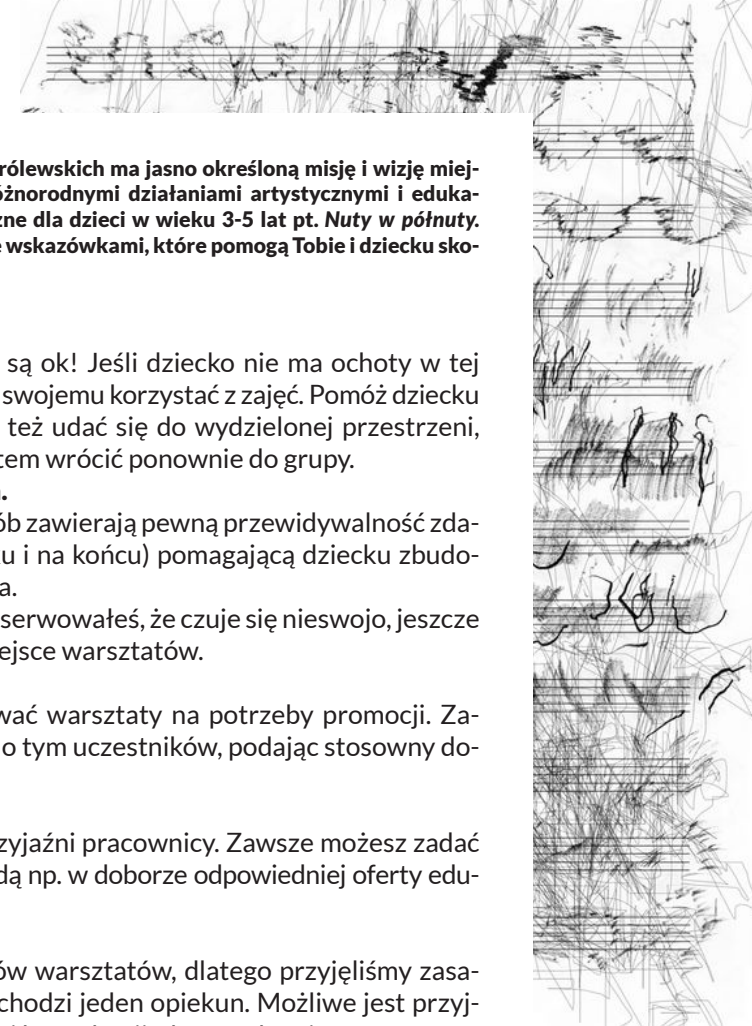 rólewskich ma jasno określoną misję i wizję miej-
óżnorodnymi działaniami artystycznymi i eduka-
zne dla dzieci w wieku 3-5 lat pt. Nuty w półnuty.
e wskazówkami, które pomogą Tobie i dziecku sko-
są ok! Jeśli dziecko nie ma ochoty w tej
swojemu korzystać z zajęć. Pomóż dziecku
też udać się do wydzielonej przestrzeni,
tem wrócić ponownie do grupy.
ób zawierają pewną przewidywalność zda-
u i na końcu) pomagającą dziecku zbudo-
a.
serwowałeś, że czuje się nieswojo, jeszcze
ejsce warsztatów.
wać warsztaty na potrzeby promocji. Za-
o tym uczestników, podając stosowny do-
zyjaźni pracownicy. Zawsze możesz zadać
dą np. w doborze odpowiedniej oferty edu-
ów warsztatów, dlatego przyjęliśmy zasa-
chodzi jeden opiekun. Możliwe jest przyj-